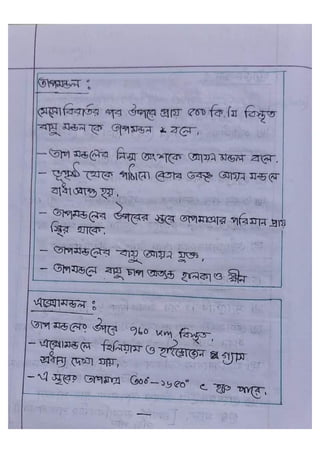 তাপমন্ডল :
মেসোবিরতির পর উপরে প্রায় ৫০০ কি.মি বিস্তৃত
বায়ু মন্ডল কে তাপমন্ডল বলে,
- তাপ মন্ডলের নিম্ন অংশকে আয়ন মন্ডল বলে.
- ভূপৃষ্ঠ থেকে পাঠানো বেতার তরঙ্গ আয়ন মন্ডলে
বাধাপ্রাপ্ত হয়,
- তাপমন্ডলের উপরের স্তরে তাপমাত্রার পরিমান প্রায়
স্থির থাকে.
- তাপমন্ডলের বায়ু আয়ন যুক্ত,
- তাপমন্ডলে বায়ু চাপ অত্যন্ত হালকা ও ক্ষীন
এক্সোমন্ডল :
তাপ মন্ডলের উপরে ৭৬০ km বিস্তৃত,
- এক্সোমন্ডলে হিলিয়াম ও হাইড্রোজেন গ্যাস
দেখা যায়,
- এ স্তরের তাপমাত্রা ৩০০-১৬৫০° c হতে পারে.